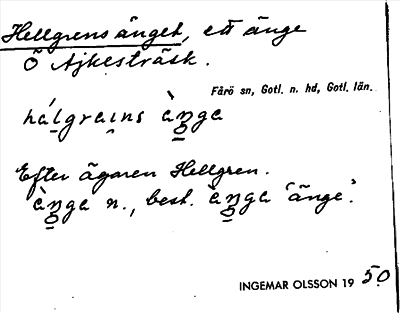 Hellgrens änget, ett änge
Ö Ajkesträsk.
Fårö sn, Gotl. n. hd, Gotl. län.
hálgrains àŋga
Efter ägaren Hellgren.
àŋga n., best. àŋga 'änge'.
INGEMAR OLSSON 1950